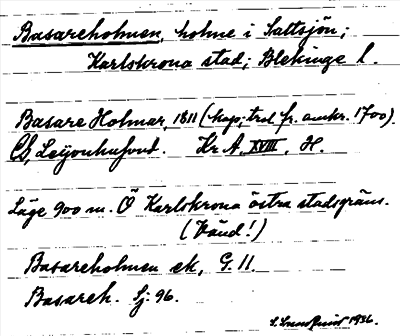 Basareholmen, holme i Saltsjön;
Karlskrona stad; Blekinge l.
Basare Holmar, 1811 (kop; trol. fr. omkr. 1700).
Cb, Leijonhufvud. Kr. A. XVIII. H.
Läge 900 m. Ö Karlskrona östra stadsgräns.
(Vänd!)
Basareholmen ek, G. 11.
Basareh. Sj. 96.
1936.